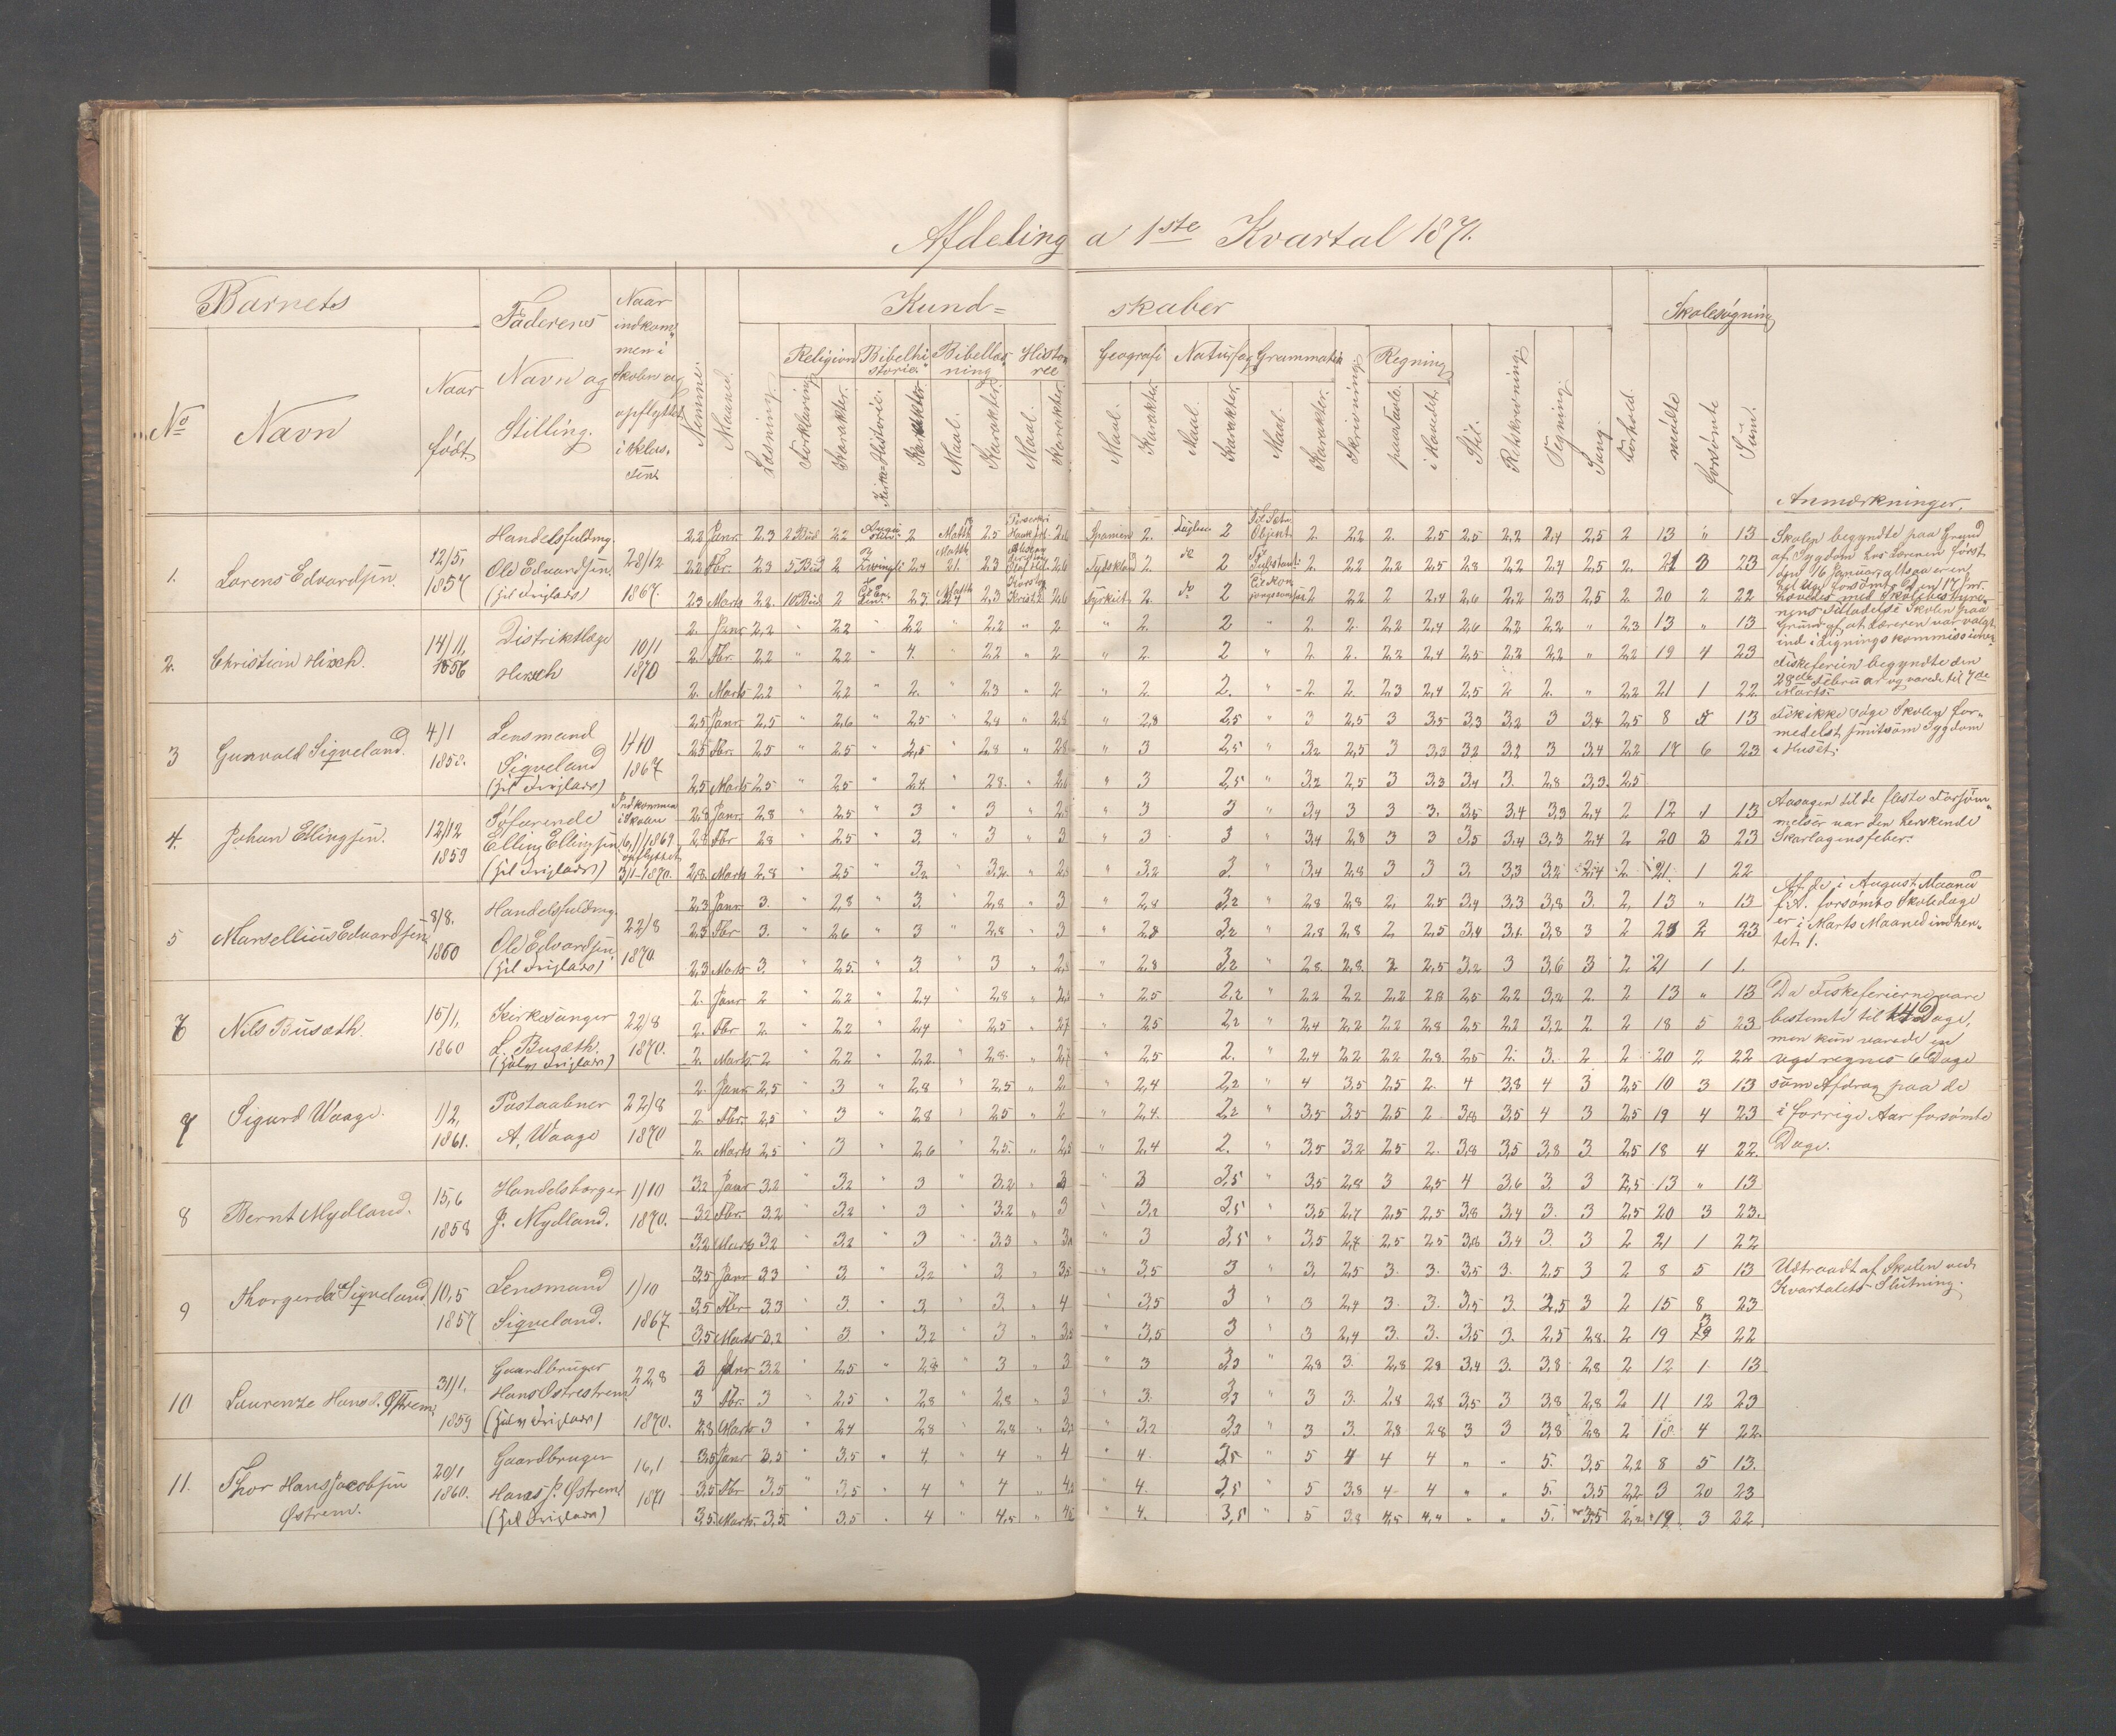 Afdeling a 1ste Kvartal 1871.
Barnets
Faderens Navn og Stilling.
Naar indkommen i Skolen og opflyttet i Klassen
Kundskaber
Skolesøgning
No
Navn
Naar født.
Nemme.
Maaned.
Læsning.
Religion
Forklaring.
Karakter.
Bibelhistorie.
Kirke-Historie.
Karakter.
Bibellæsning
Maal.
Karakter.
Historie
Maal.
Karakter.
Geografi
Maal.
Karakter.
Naturfag
Maal.
Karakter.
Grammatik
Maal.
Karakter.
Skrivning.
Regning
paa Tavle.
i Hovedet.
Stil.
Retskrivning.
Tegning
Sang.
Forhold.
mødte
forsømte
Sum.
Anmærkninger.
1. Lorens Edvardsen. 12/5, 1857 Handelsfuldmg. Old Edvardsen. 28/12 1867.
2,2 Janr. 2,3 2 Bud 2,2 2 Matth 2,5 2,6 Spanien 2. Fuglene 2 Objekt. 2. 2,2 2. 2,5 2,5 2,2 2,4 2,5 2 13 " 13
2,2 Fbr. 2,3 5 Bud 2 Zwingli 2,4 Matth 21. 2,3 2,6 Tydskland 2. do 2 Substanti: 2. 2,2 2,2 2,5 2,8 2,2 2,4 2,5 2. 21 23
2,3 Marts 2,2. 10 Bud 2 2,3 Matth 2,3 2,6 Tyrkiet 2. do 2 2 2,2 2 2,4 2,6 2,2 2,3 2,5 2 20 2 22
2. Christian Hirsch. 14/11, 1856 Distriktlæge Hirsch 10/1 1870
2. Janr 2,2 " 2,2 " 2,2 " 2,2 " 2 " 2. 2 " 2. 2. 2,2 2,4 2,6 2,2 2,2 " 2,3 13 " 13
2. Fbr. 2,2 " 2,2 " 4. " 2,2 " 2 " 2. 2 " 2. 2. 2,2 2,4 2,5 2,2 2,2 " 2,2 19 4 23
2. Marts 2,2 " 2,2 " 2. " 2,3 " 2 " 2. 2. " 2. 2. 2,3 2,4 2,5 2 2. " 2,2 21 1 22
3 Gunvald Siqveland. 4/1 1858. Lensmand Siqveland 1/10 1867
2,5 Janr. 2,5 " 2,6 " 2,5 " 2,8 " 2,8 " 2,8 2,5 " 3 2,5 3 3,5 3,3 3,2 3 3,4 2,5 8 5 13
2,5 Fbr. 2,5 " 2,5 " 2,5 " 2,8 " 2,8 " 3 2,5 " 3,2 2,5 3 3,3 3,2 3,2 3 3,4 2,2 17 6 23
2,5 Marts 2,5 " 2,5 " 2,4. " 2,8. " 2,6 " 3 2,5 " 3,2 2,5 3 3,3 3,4 3. 2,8 3,3. 2,5
4. Johan Ellingsen. 12/12 1859 Søfarende Elling Ellingsen Indkommen i Skolen 6/11 1869 opflyttet 3/1-1870.
2,8 Janr. 2,8 " 2,5 " 3 " 3 " 2,8 " 3 3 " 3,4 3 3 3. 3,5 3,4 3,3 2,4 2 12 1 13
2,8 Fbr 2,8 " 2,5 " 3. " 3 " 3 " 3 3 " 3,4 2,8 3 3 3,5 3,4 3,3 2,4 2 20 3 23
2,8. Marts 2,8 " 2,5 " 3,2 " 3,2. " " 3,2 3 " 3,4 2,8 3 3 3. 3,3 3,2 2,4 2. 21. 1 22
5 Marsellius Edvardsen 8/8. 1860 Handelsfuldmg. Old Edvardsen, 22/8 1870.
2,3 Janr. 3. " 2,8 " 3. " 2,8 " 3 " 2,8 3,2 " 2,8 2,8 2, 2,5 3,4 3,3 3,8 3. 2, 13 " 13
2,3 Fbr 3. " 2,6 " 3 " 2,8 " 3 " 2,8 3,2 " 2,8 2,8 2 2,5 3,4 3,1 3,8 3 2 21 2 23
2,3 Marts 3. " 2,5. " 3. " 3 " " 2,8 3,2 " 2,8. 2,8. 2 2,5 3,2 3 3,6 3 2 21 1 1.
6 Nils Busæth. 15/1, 1860 Kirkesanger L. Busæth. 22/8 1870.
2. Janr 2 " 2,2 " 2,4 " 2,8 " " 2,5 2,2 " 2,2 2,2 2,2 2,8 2,5 2,2 3,2 2. 2 13 " 13
2. Fbr 2. " 2,2 " 2,4 " 2,5 " 2,7 " 2,5 2,2 " 2,4 2,2 2,2 2,8 2,5 2,2 3,2 2. 2 18 5 23.
2. Marts 2 " 2,2 " 2,2. " 2,8. " " 2,5 2. " 2,4 2,2 2,2 2,8. 2,5 2. 3. 2 2 20 2 22
7 Sigurd Waage. 1/2, 1861. Postaabner A. Waage 22/8 1870
2. Janr 2,5 " 3 " 2,8 " 2,5 " 2. " 2,4 2,2 " 4 3,5 2,5 2. 4 3,8 4 3 2,5 10 3 13
2. Fbr. 2,5 " 3 " 2,8 " 2,5 " 2 " 2,4. 2,2 " 3,5 3,5 2,5 2 3,8 3,5 4 3 2,5 19 4 23
2. Marts 2,5 " 3 " 2,6 " 2,5. " " 2,4 2. " 3,5 3,2 2,5 2. 3,8 3,5 3,8 3. 2,5 18 4 22.
8 Bernt Mydland. 15,6 1858 Handelsborger J. Mydland. 1/10 1870.
3,2 Janr 3,2 " 3,2 " 3 " 3,2 " 3 " 3 3,5 " 3,5 2,8 3 2,5 4 3,6 3. 3 2,5 13 " 13
3,2 Fbr. 3,2 " 3,2 " 3 " 3,2 " 3 " 3,2 3,5 " 3,5 2,7 2,5 2,5 3,8 3,4 3. 3 2,5 20 3 23.
3,2 Marts 3,2 " 3,2 " 3 " 3,3 " " 3 3,5 " 3,5 2,7 2,5 2,5 3,8 3,4 3. 3 2 21 1 22
9 Thorgerda Siqveland. 10,5 1857 Lensmand Siqveland. 1/10 1867.
3,5 Janr 3,3 " 3. " 3,2 " 3. " 3,5 " 3,5 3 " 3. 2,5 3. 3. 3,5 3. 2,5 3 2 8 5 13
3,5 Fbr 3,3 " 3. " 3. " 3. " 4 " 3,5 3 " 3 2,4 3. 3. 3,5 3. 2,5 3 2 15 8 23
3,5 Marts 3,2 " 3 " 3,2 " 3 " 3,5 " 3,5 3 " 3 2,4 3. 3. 3,5 3. 2,5 2,8. 2 19 3 22
10 Laurenze Hansd. Østrem. 31/1, 1859 Gaardbruger Hans Østrem 22,8 1870.
3 Janr 3,2 " 2,5 " 2,8 " 3 " 3 " 3 3,3 " 2,8 3. 2,8 2,8 3,4 3. 3,8 2,8 2 12 1. 13
3 Fbr. 3 " 2,5 " 2,8 " 2,8 " 3 " 3. 3,3 " 3 3. 2,8 2,8 3,5 3 3,8 2,8 2 11 12 23
2,8 Marts 3 " 2,4 2,8 " 2,8 " " 3,2 3,3 " 3 3. 2,8 2,8 3 3 3,8 2,8 2 18. 4 22.
11. Thor Hans Jacobsen Østrem. 20/1 1860. Gaardbruger Hans J. Østrem 16,1 1871
3,5 Janr 3,5 " 3,5 " 4. " 4 " 4 " 4. 3,5 " 5 4 4 4 " " 5. 3,5 2,2 8 5 13.
3,5 Fbr 3,5 " 3,5 " 4 " 4 " " 4. 3,5 " 5 3,8 4 4 " " 5. 3,5 2,2 3 20 23
3,5. Marts. 3,5 " 3,5 " 4 " 4,5 " " 4. 3,5 " 5 3,8 4,5 4,4 " " 5. 3,5 2,2 19 3 22
Skolen begyndte paa Grund
af Sygdom hos Læreren først
den 16 Januar, altsaa er en
hel Uge forsømt. Den 17 Fbr.
havdes med Skolebestyre-
rens Tilladelse Skolen paa
Grund af, at Læreren var valgt
ind i Ligningskommissionen.
Fiskeferien begyndte den
28de Februar og varede til 7de
Marts.
Fik ikke søge Skolen for-
medelst smitsom Sygdom
i Huset.
Aasagen til de fleste Forsøm-
melser var den herskende
Skarlagensfeber.
Af de i August Maaned
f. A. forsømte Skoledage
er i Marts Maaned indhen-
tet 1.
Da Fiskeferierne vare
bestemte til 14 Dage,
men kun varede en
Uge regnes 6 Dage
som Afdrag paa de
i forrige Aar forsømte
Dage.
Udtraadt af Skolen ved
Kvartalets Slutning.